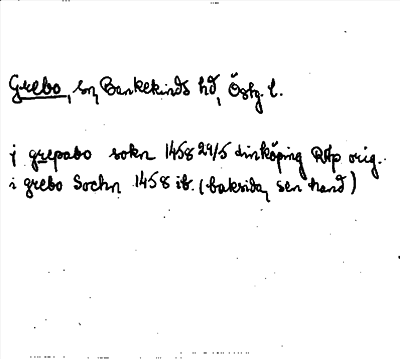 Grebo, sn, Bankekinds hd, Östg. l.
j grepabo sokn 1458 29/5 Linköping RAp orig.
i grebo Sochn 1458 ib. (baksida, sen hand)